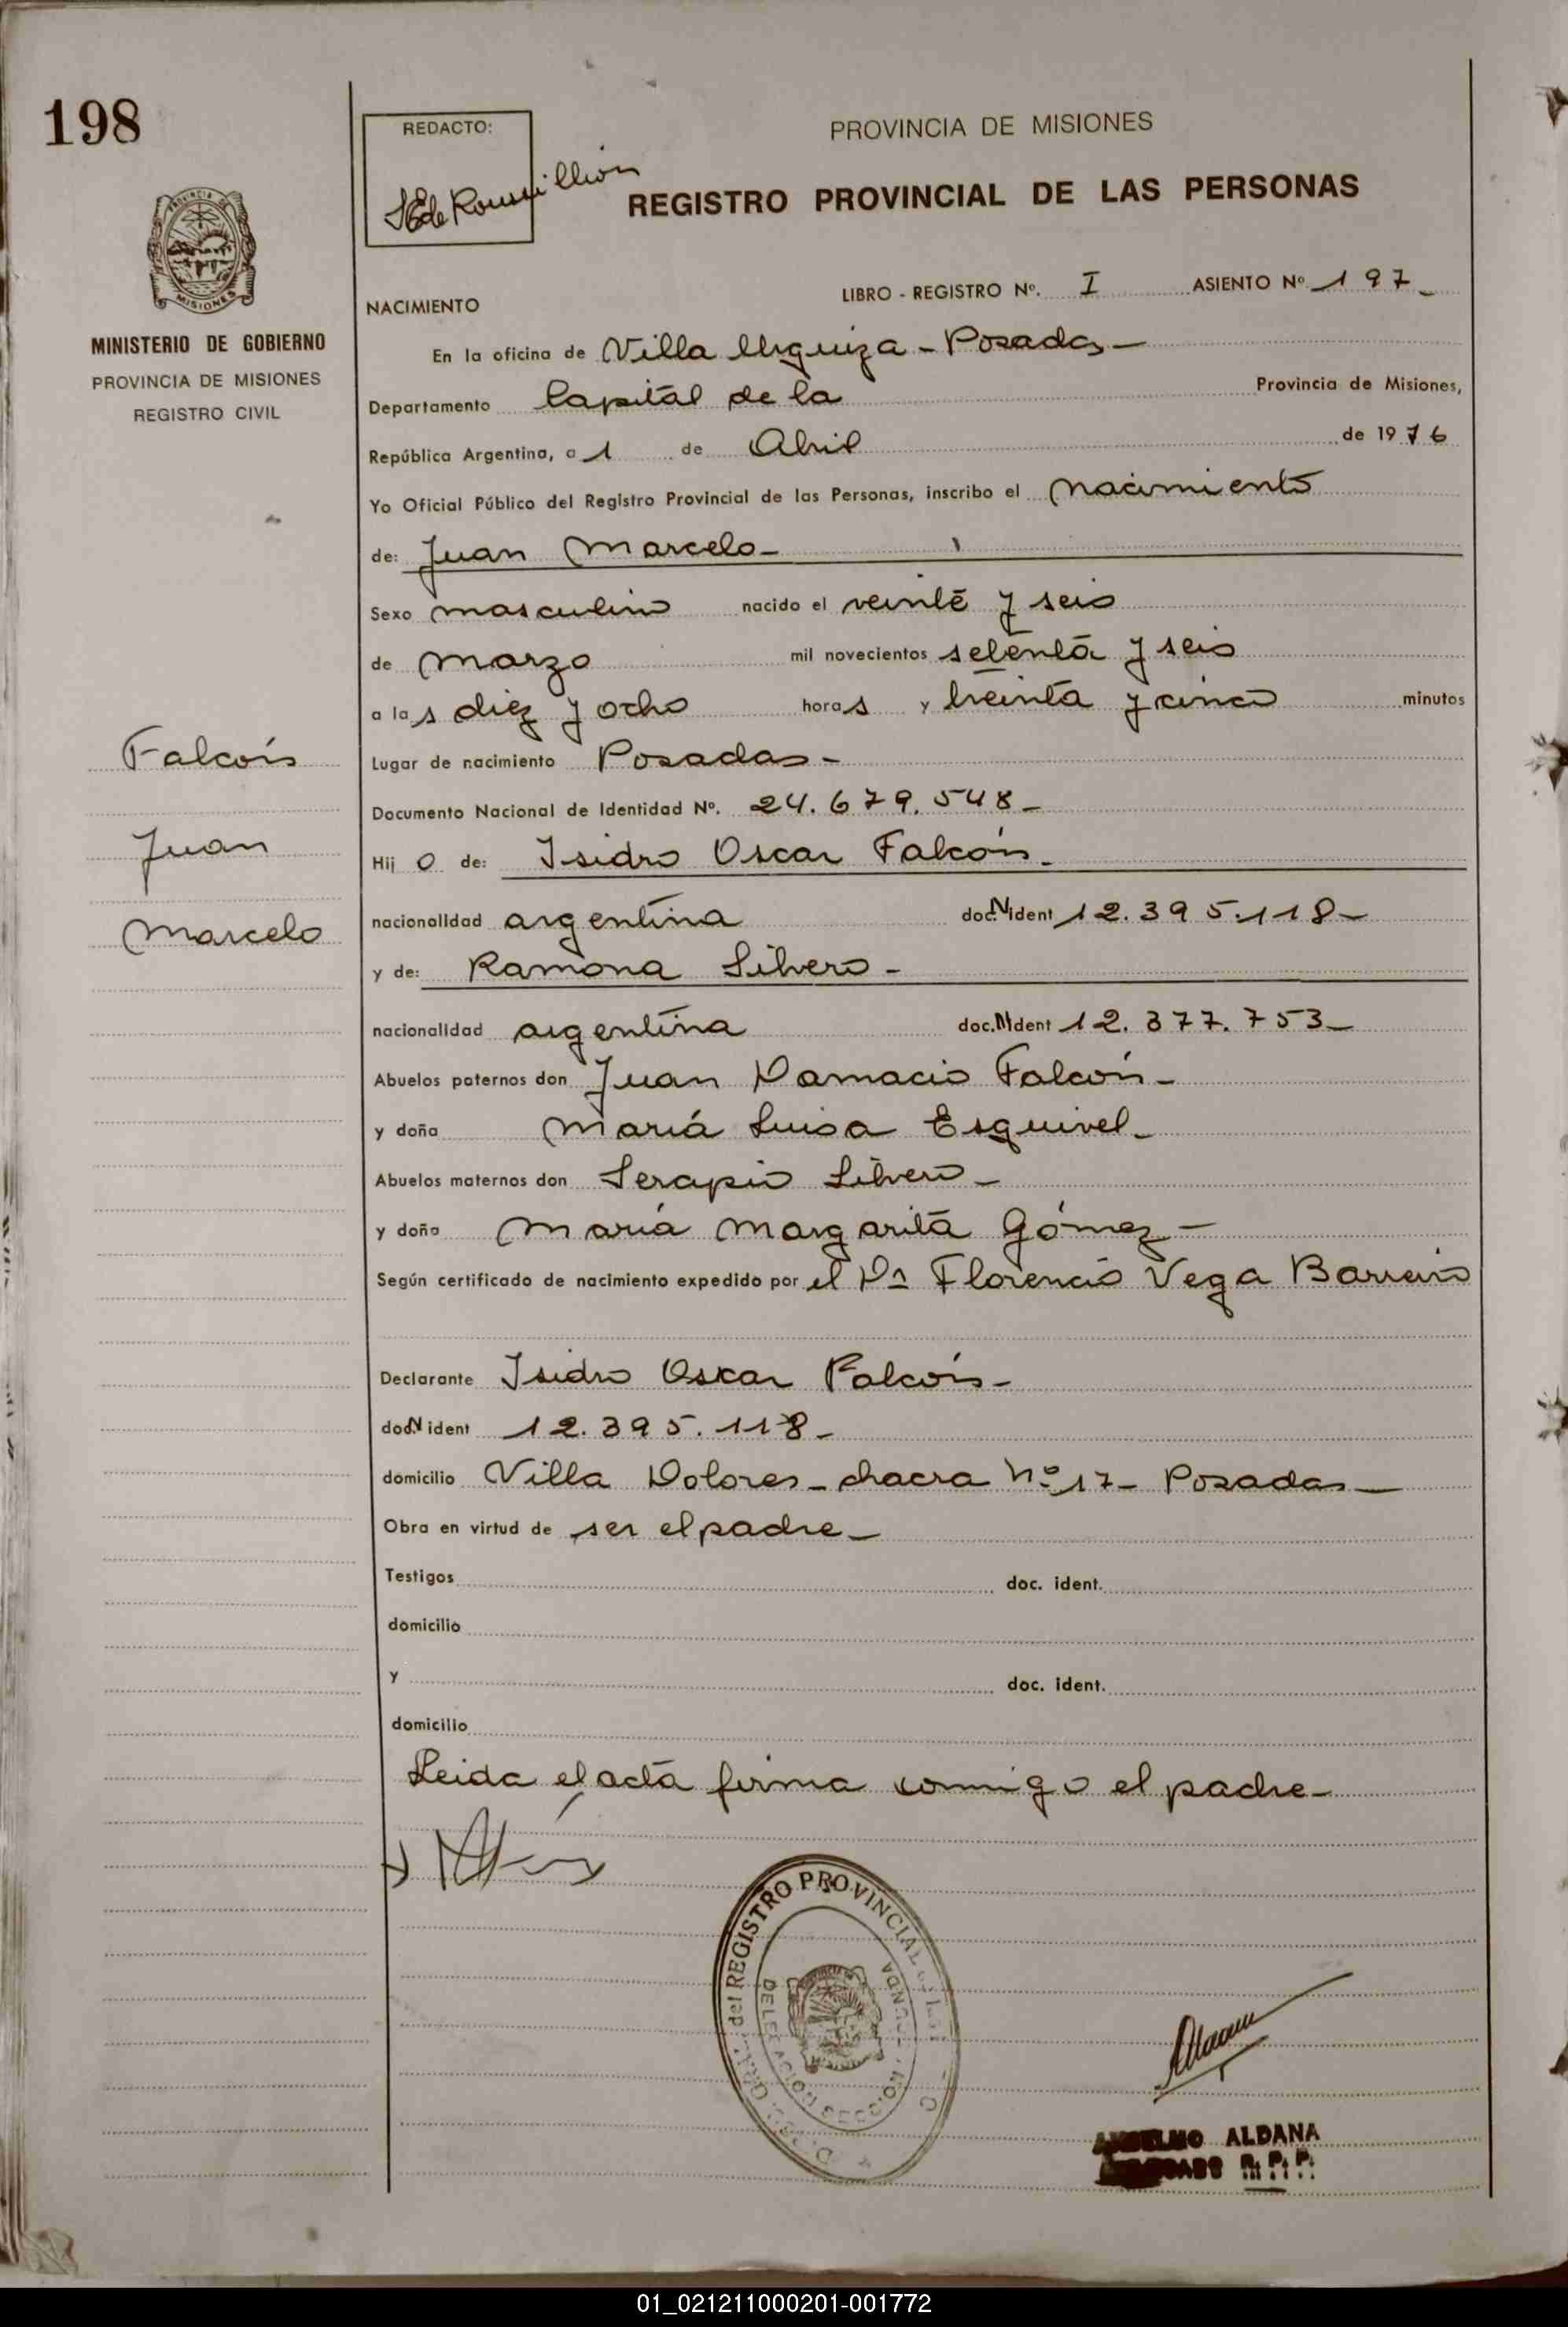 198
REDACTO:
PROVINCIA DE MISIONES
REGISTRO PROVINCIAL DE LAS PERSONAS
MISIONES
MINISTERIO DE GOBIERNO
PROVINCIA DE MISIONES
REGISTRO CIVIL
NACIMIENTO
LIBRO - REGISTRO Nº. I ASIENTO Nº 197
En la oficina de Villa Urquiza - Posadas -
Departamento Capital de la Provincia de Misiones,
República Argentina, a 1 de Abril de 1976
Yo Oficial Público del Registro Provincial de las Personas, inscribo el nacimiento
de: Juan Marcelo -
Sexo masculino nacido el veinte y seis
de marzo mil novecientos setenta y seis
a las diez y ocho horas y treinta y cinco minutos
Falcón
Juan
Marcelo
Lugar de nacimiento Posadas -
Documento Nacional de Identidad Nº. 24.679.548 -
Hijo de: Isidro Oscar Falcón -
nacionalidad argentina doc. N ident 12.395.118 -
y de: Ramona Silvero -
nacionalidad argentina doc. N ident 12.377.753 -
Abuelos paternos don Juan Damacio Falcón -
y doña María Luisa Esquivel -
Abuelos maternos don Serapio Silvero -
y doña María Margarita Gómez -
Según certificado de nacimiento expedido por el Dr Florencio Vega Barreiro
Declarante Isidro Oscar Falcón -
doc. N ident 12.395.118 -
domicilio Villa Dolores - chacra Nº 17 - Posadas -
Obra en virtud de ser el padre -
Testigos doc. ident.
domicilio
y doc. ident.
domicilio
Leida el acta firma conmigo el padre -
del REGISTRO PROVINCIAL
ANSELMO ALDANA
R. P. P.
01_021211000201-001772